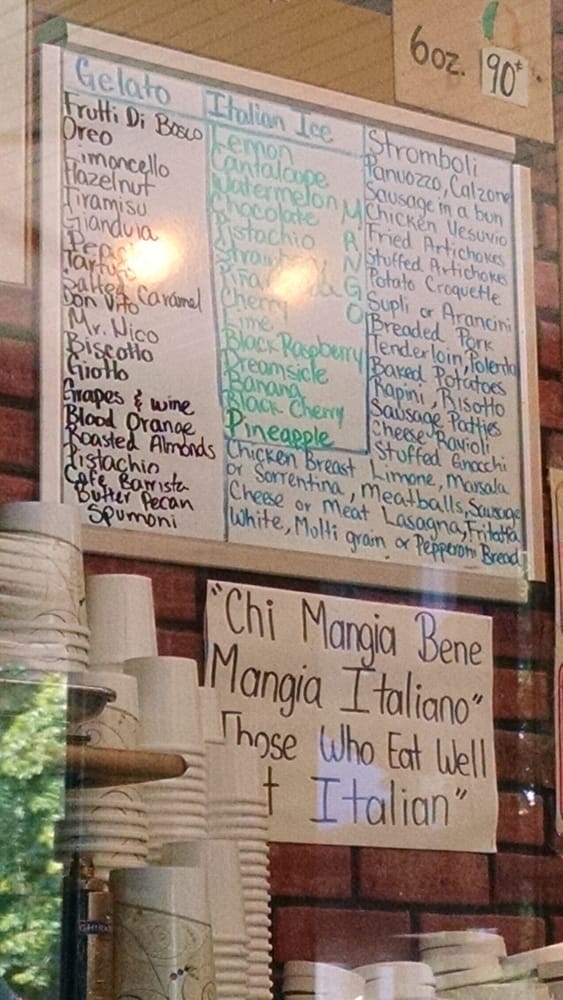 6oz. 90¢
Gelato
Frutti Di Bosco
Oreo
Limoncello
Hazelnut
Tiramisu
Gianduia
Tartufo
Salted Caramel
Don Vito
Mr. Nico
Biscotto
Giotto
Grapes & wine
Blood Orange
Roasted Almonds
Pistachio
Cafe Barrista
Butter Pecan
Spumoni
Italian Ice
Lemon
Cantaloupe
Watermelon
Chocolate
Pistachio
Cherry
Lime
Black Raspberry
Dreamsicle
Banana
Black Cherry
Pineapple
MANGO
Stromboli
Panuozzo, Calzone
Sausage in a bun
Chicken Vesuvio
Fried Artichokes
Stuffed Artichokes
Potato Croquette
Supli or Arancini
Breaded Pork
Tenderloin, Polenta
Baked Potatoes
Rapini, Risotto
Sausage Patties
Cheese Ravioli
Stuffed Gnocchi
Chicken Breast Limone, Marsala
or Sorrentina, Meatballs, Sausage
Cheese or Meat Lasagna, Frittata
White, Multi grain or Pepperoni Bread
"Chi Mangia Bene
Mangia Italiano"
Those Who Eat Well
Italian"